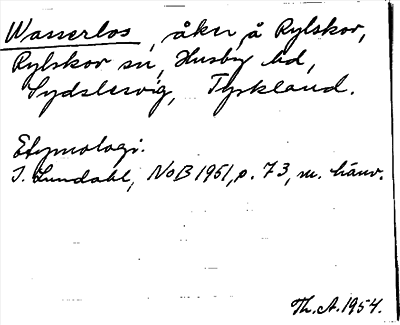 Wasserlos, åker, å Rylskov,
Rylskov sn, Husby hd,
Sydslesvig, Tyskland.
Etymologi.
I. Lundahl, NoB 1951, s. 73, m. hänv.
Th. A. 1954.